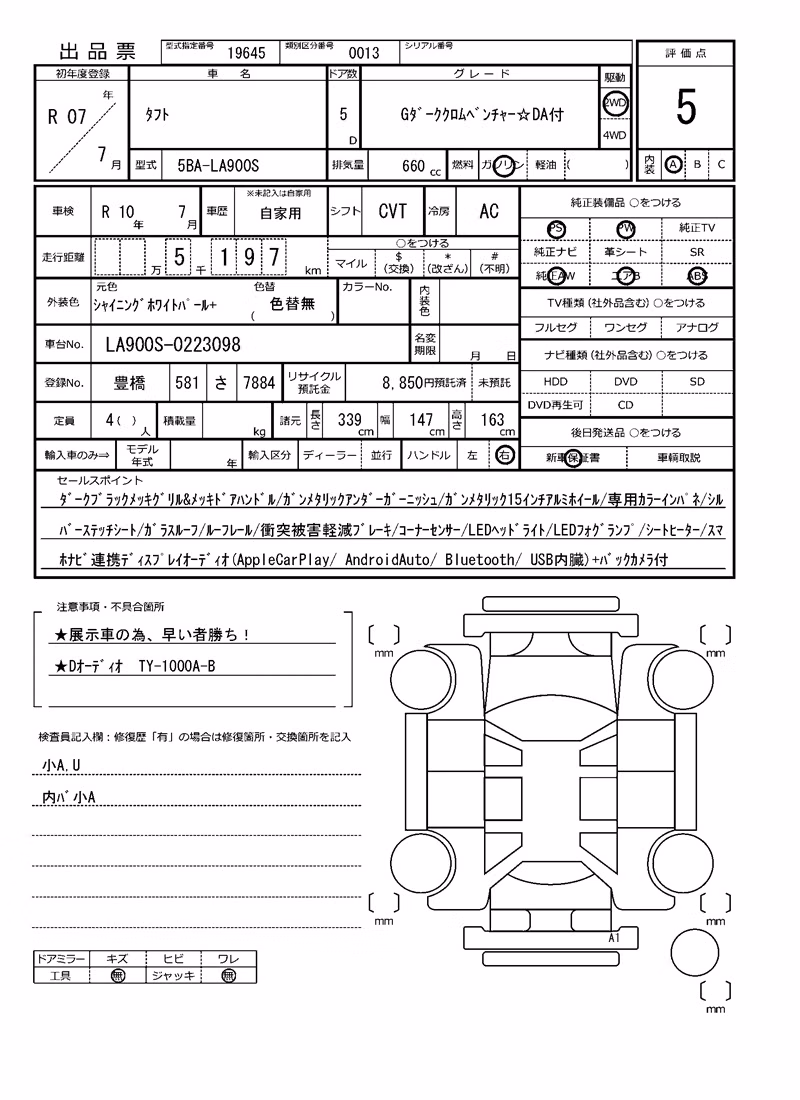 出品票 型式指定番号 19645 類別区分番号 0013 シリアル番号
評価点
5
内装 A B C
初年度登録 車名 ドア数 グレード 駆動
R 07 年 7 月 タフト 5 D Gダーククロムベンチャー☆DA付 2WD
4WD
型式 5BA-LA900S 排気量 660 cc 燃料 ガソリン 軽油 ( )
車検 R 10 年 7 月 車歴 ※未記入は自家用 自家用 シフト CVT 冷房 AC
走行距離 万 5 千 1 9 7 km ○をつける
マイル $(交換) *(改ざん) #(不明)
外装色 元色 シャイニングホワイトパール+ 色替 ( 色替無 ) カラーNo. 内装色
車台No. LA900S-0223098 名変期限 月 日
登録No. 豊橋 581 さ 7884 リサイクル預託金 8,850円預託済 未預託
定員 4( ) 人 積載量 kg 諸元 長さ 339 cm 幅 147 cm 高さ 163 cm
輸入車のみ⇒ モデル年式 年 輸入区分 ディーラー 並行 ハンドル 左 右
純正装備品 ○をつける
PS PW 純正TV
純正ナビ 革シート SR
純正AW エアB ABS
TV種類(社外品含む)○をつける
フルセグ ワンセグ アナログ
ナビ種類(社外品含む)○をつける
HDD DVD SD
DVD再生可 CD
後日発送品 ○をつける
新車保証書 車輌取説
セールスポイント
ダークブラックメッキグリル&メッキドアハンドル/ガンメタリックアンダーガーニッシュ/ガンメタリック15インチアルミホイール/専用カラーインパネ/シル
バーステッチシート/ガラスルーフ/ルーフレール/衝突被害軽減ブレーキ/コーナーセンサー/LEDヘッドライト/LEDフォグランプ/シートヒーター/スマ
ホナビ連携ディスプレイオーディオ(AppleCarPlay/ AndroidAuto/ Bluetooth/ USB内臓)+バックカメラ付
注意事項・不具合箇所
★展示車の為、早い者勝ち!
★Dオーディオ TY-1000A-B
検査員記入欄:修復歴「有」の場合は修復箇所・交換箇所を記入
小A,U
内バ小A
mm
mm
mm
mm
A1
mm
ドアミラー キズ ヒビ ワレ
工具 無 ジャッキ 無